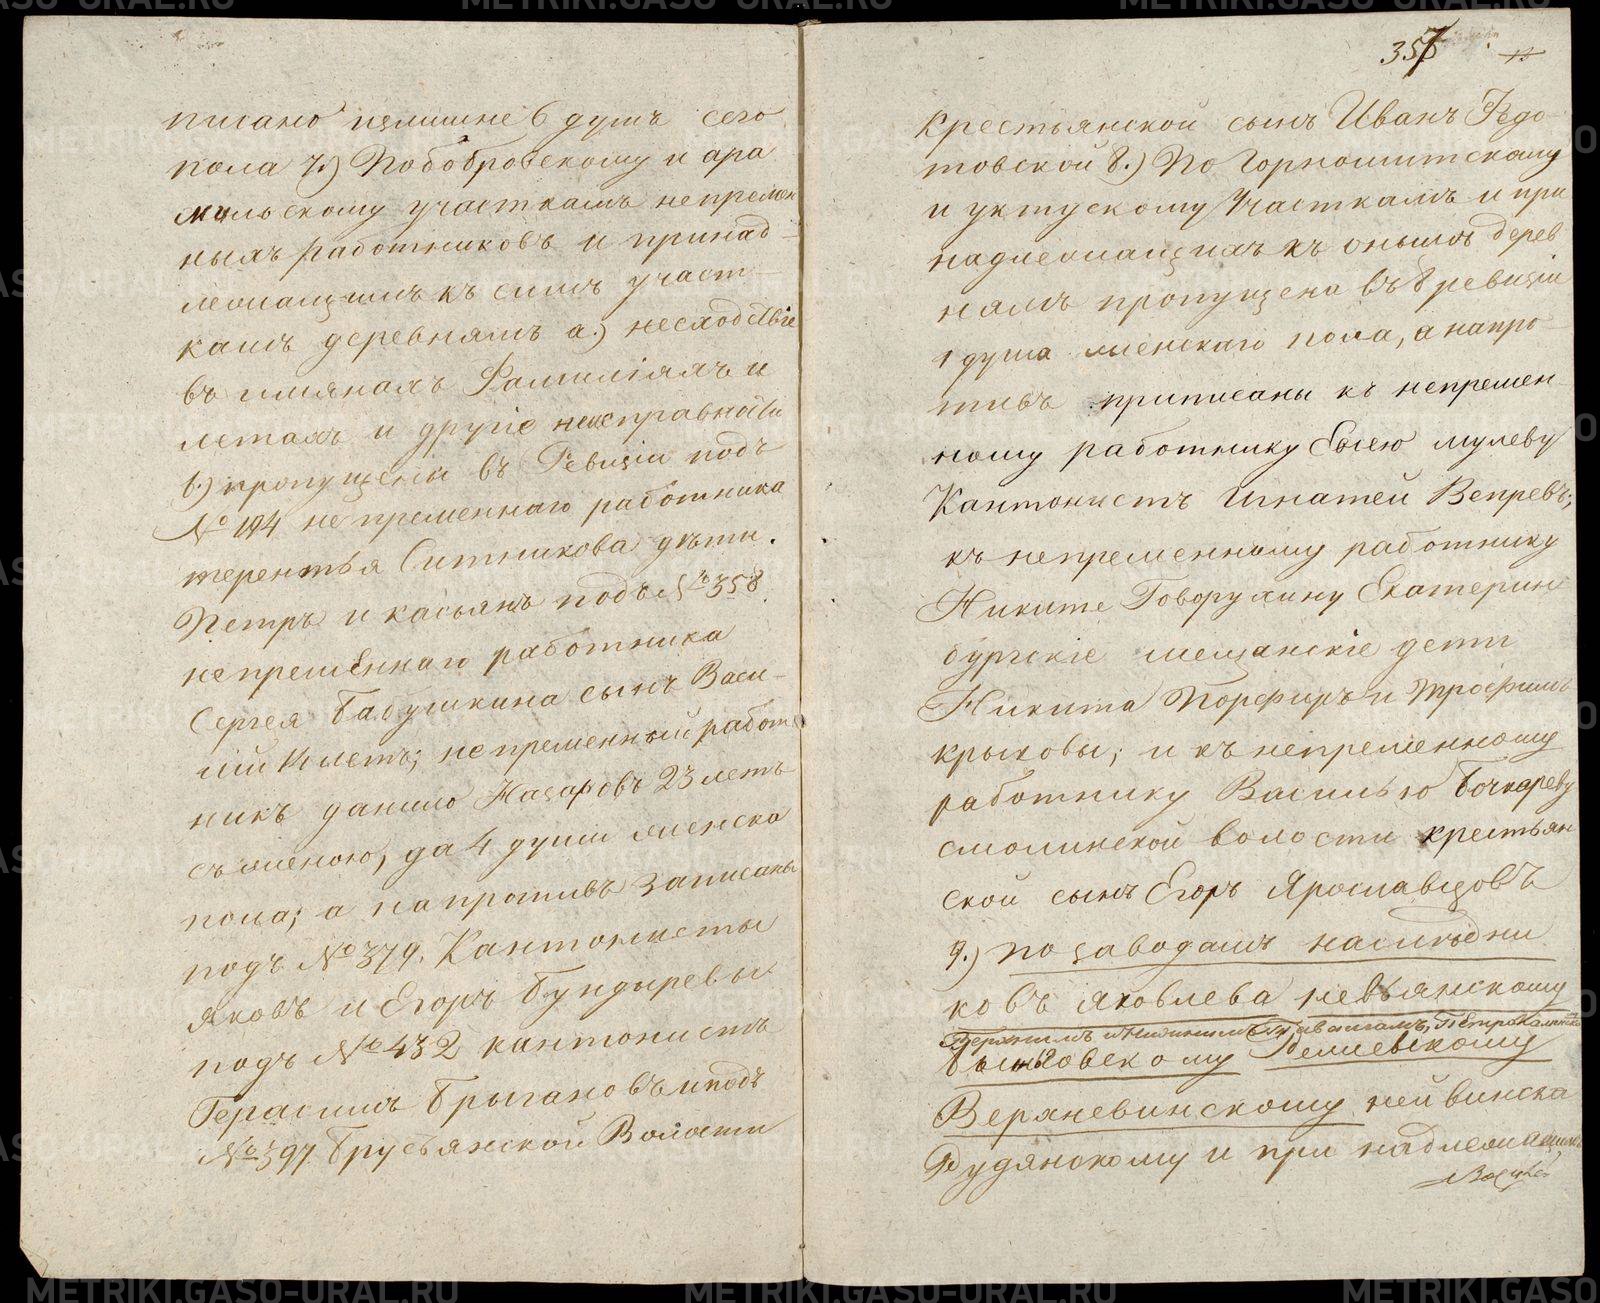 писано излишне 6 душъ сего
пола 7.) По бобровскому и ара
мильскому участкамъ непремен
ныхъ работниковъ и принад
лежащимъ къ симъ участ
камъ деревнямъ а.) несходствіе
въ имянахъ Фамиліяхъ и
летахъ и другіе неисправности
б.) пропущены въ Ревизіи подъ
№ 194 непременнаго работника
терентья Ситникова дѣти
Петръ и касьянъ подъ № 358
непременнаго работника
Сергея бабушкина сынъ Васи
лій 14 летъ; непременный работ
никъ данило Назаровъ 23 летъ
съ женою, да 4 души женска
пола; а на противъ записаны
подъ № 379. Кантонисты
яковъ и Егоръ бундыревы
подъ № 432 кантонистъ
Герасимъ брызгановъ и подъ
№ 597 брусянской Волости
357
крестьянской сынъ Иванъ Ѳедо
товской 8.) По Горнощитскому
и уктускому Участкамъ и при
надлежащихъ къ онымъ дерев
нямъ пропущена въ 8 ревизіи
1 душа женскаго пола, а напро
тивъ приписаны къ непремен
ному работнику Евсею мулеву
Кантонистъ Игнатей Вепревъ;
къ непременному работнику
Никите Говорухину Екатерин
бургскіе мещанскіе дети
Никита Порфиръ и Трофимъ
крыковы; и къ непременному
работнику Василью бочкареву
смолинской волости крестьян
ской сынъ Егоръ Ярославцовъ
9.) по заводамъ наследни
ковъ яковлева невьянскому
Верхнимъ и Нижнимъ Петрокаменско
быньговскому Режевскому
Верхневинскому нейвинска
Рудянскому и при надлежащимъ